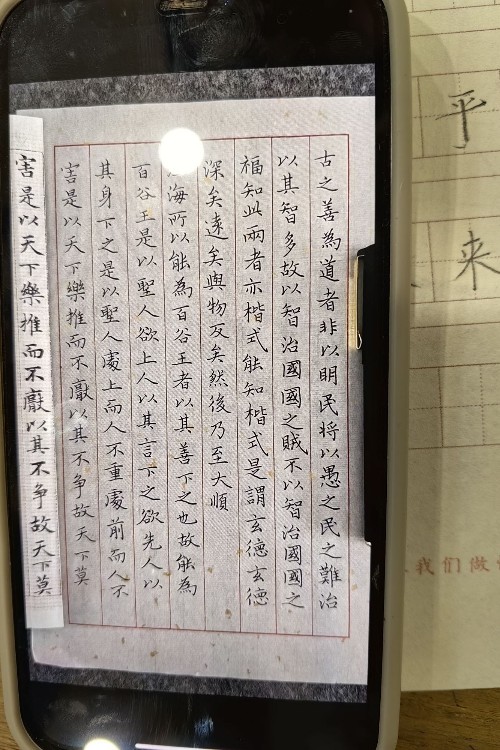 平
来
我们做
古之善為道者非以明民将以愚之民之難治
以其智多故以智治國國之賊不以智治國國之
福知此兩者亦楷式能知楷式是謂玄德玄德
深矣遠矣與物反矣然後乃至大順
海所以能為百谷王者以其善下之也故能為
百谷王是以聖人欲上人以其言下之欲先人以
其身下之是以聖人處上而人不重處前而人不
害是以天下樂推而不厭以其不争故天下莫
害是以天下樂推而不厭以其不争故天下莫